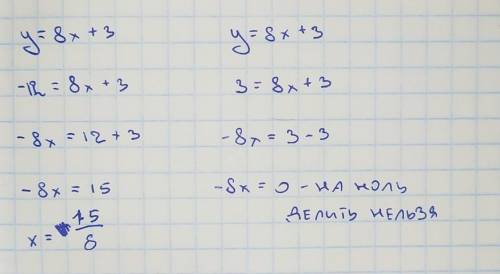 y = 8x + 3
-12 = 8x + 3
-8x = 12 + 3
-8x = 15
x = 15/8
y = 8x + 3
3 = 8x + 3
-8x = 3 - 3
-8x = 0 - на ноль
делить нельзя